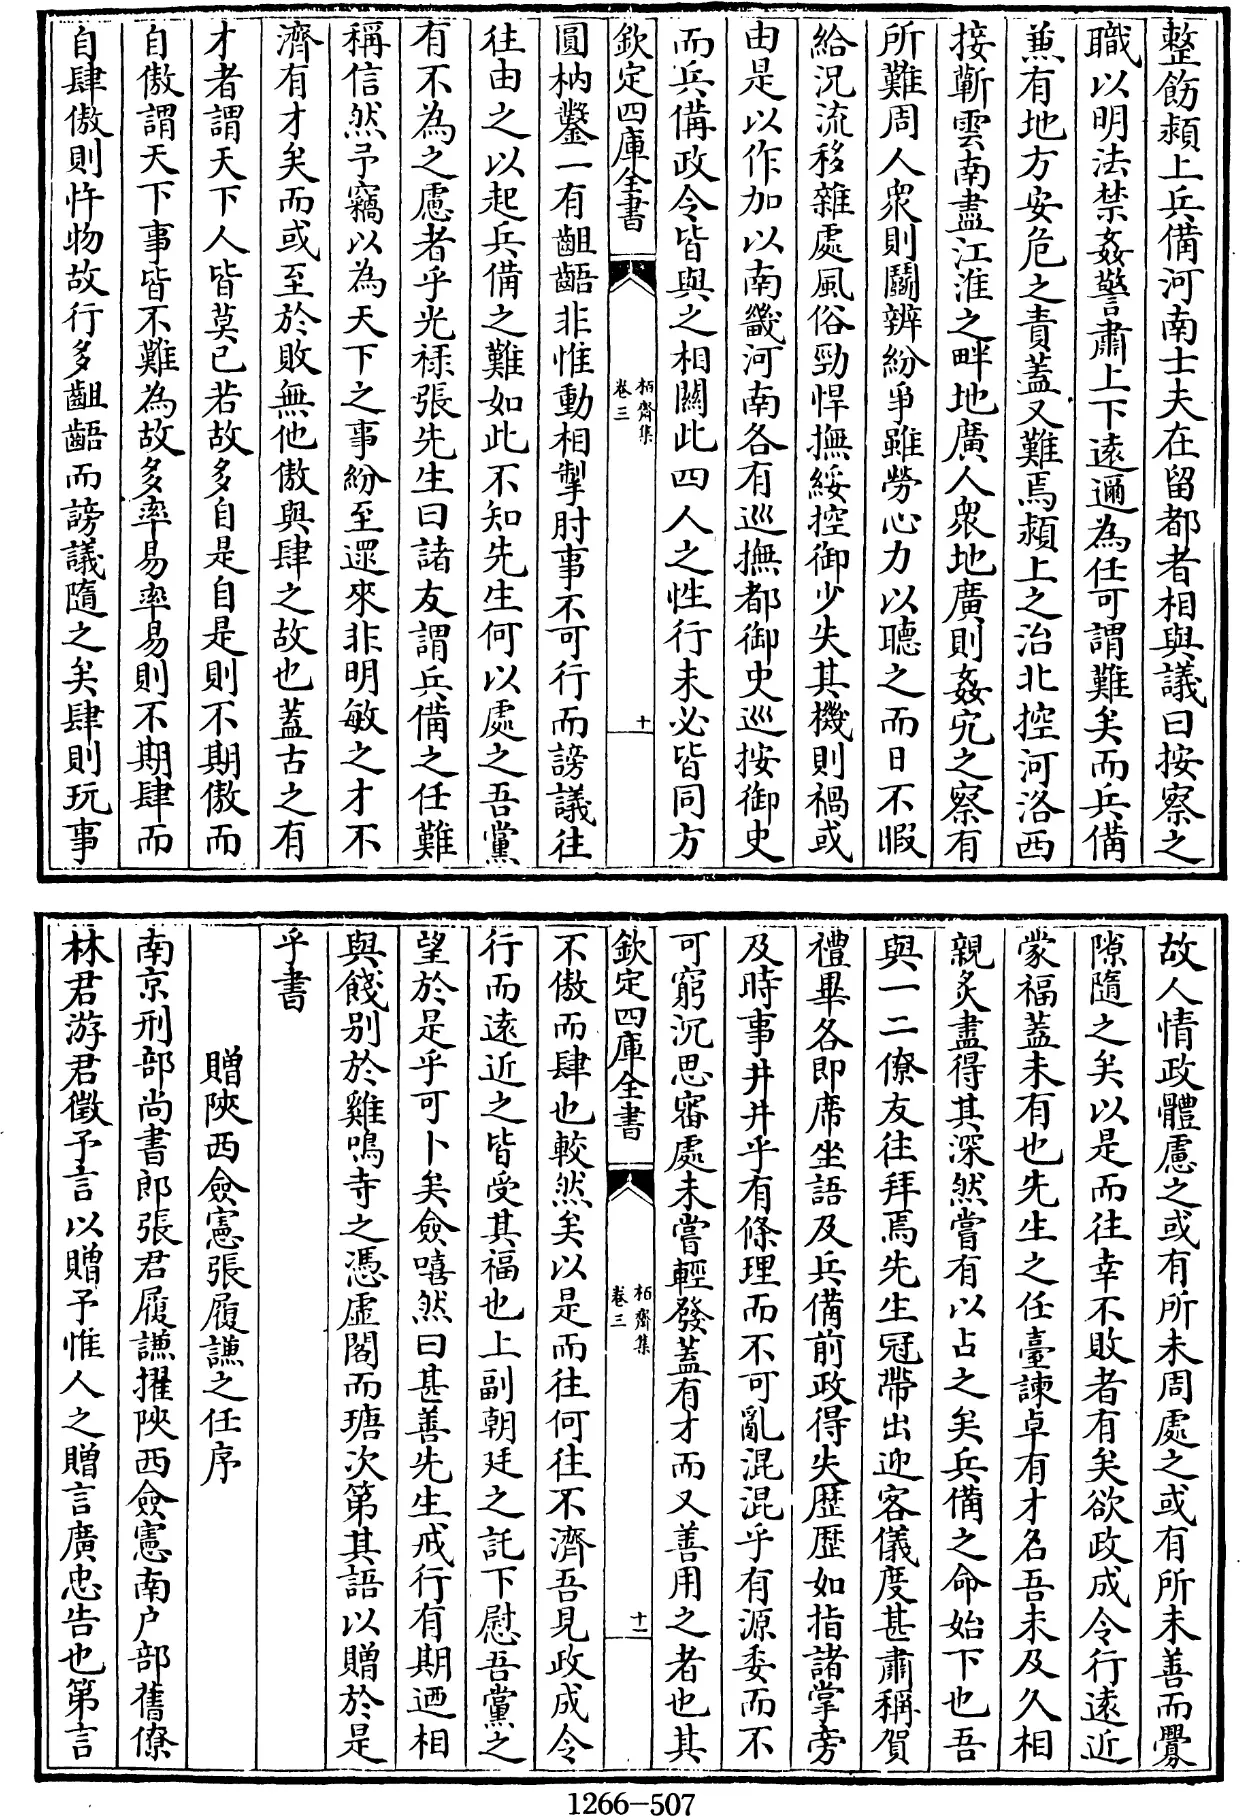 整飭潁上兵備河南士夫在留都者相與議曰按察之
職以明法禁姦警肅上下遠邇為任可謂難矣而兵備
兼有地方安危之責蓋又難焉潁上之治北控河洛西
接蘄雲南盡江淮之畔地廣人衆地廣則姦宄之察有
所難周人衆則鬭辨紛爭雖勞心力以聽之而日不暇
給況流移雜處風俗勁悍撫綏控御少失其機則禍或
由是以作加以南畿河南各有巡撫都御史巡按御史
而兵備政令皆與之相關此四人之性行未必皆同方
欽定四庫全書
栢齋集
卷三
十
圓枘鑿一有齟齬非惟動相掣肘事不可行而謗議往
往由之以起兵備之難如此不知先生何以處之吾黨
有不為之慮者乎光祿張先生曰諸友謂兵備之任難
稱信然予竊以為天下之事紛至還來非明敏之才不
濟有才矣而或至於敗無他傲與肆之故也蓋古之有
才者謂天下人皆莫已若故多自是自是則不期傲而
自傲謂天下事皆不難為故多率易率易則不期肆而
自肆傲則忤物故行多齟齬而謗議隨之矣肆則玩事
故人情政體慮之或有所未周處之或有所未善而釁
隙隨之矣以是而往幸不敗者有矣欲政成令行遠近
蒙福蓋未有也先生之任臺諫卓有才名吾未及久相
親炙盡得其深然嘗有以占之矣兵備之命始下也吾
與一二僚友往拜焉先生冠帶出迎客儀度甚肅稱賀
禮畢各即席坐語及兵備前政得失歷歷如指諸掌旁
及時事井井乎有條理而不可亂混混乎有源委而不
可窮沉思審處未嘗輕發蓋有才而又善用之者也其
欽定四庫全書
栢齋集
卷三
十一
不傲而肆也較然矣以是而往何往不濟吾見政成令
行而遠近之皆受其福也上副朝廷之託下慰吾黨之
望於是乎可卜矣僉嘻然曰甚善先生戒行有期迺相
與餞别於雞鳴寺之憑虛閣而瑭次第其語以贈於是
乎書
贈陜西僉憲張履謙之任序
南京刑部尚書郎張君履謙擢陜西僉憲南户部舊僚
林君游君徵予言以贈予惟人之贈言廣忠告也第言
1266-507